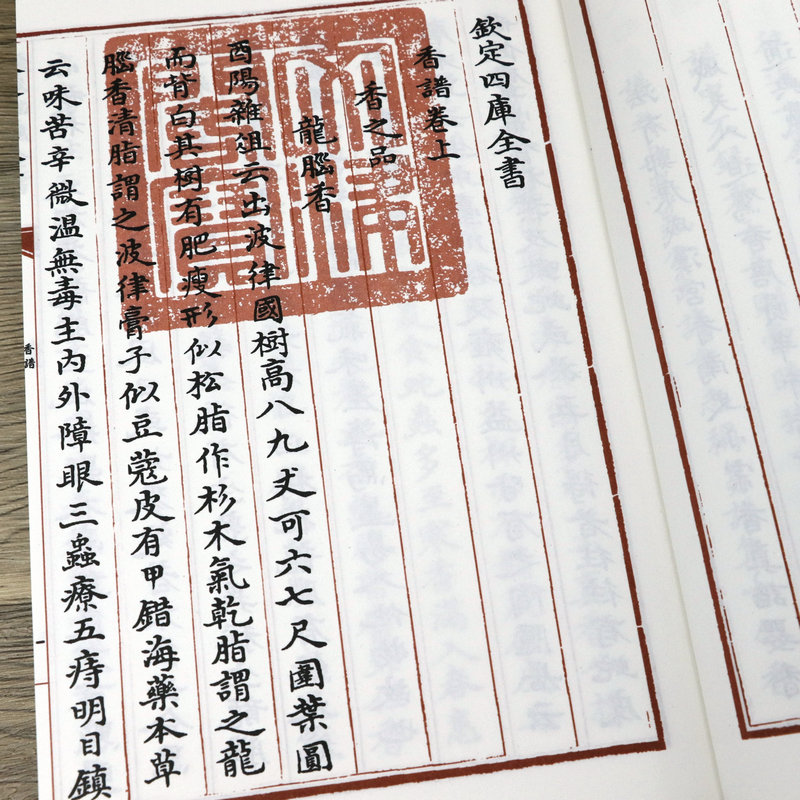 欽定四庫全書
香譜卷上
香之品
龍腦香
酉陽雜俎云出波律國樹高八九丈可六七尺圍葉圓
而背白其樹有肥瘦形似松脂作杉木氣乾脂謂之龍
腦香清脂謂之波律膏子似豆蔻皮有甲錯海藥本草
云味苦辛微溫無毒主內外障眼三蟲療五痔明目鎮
香譜
一